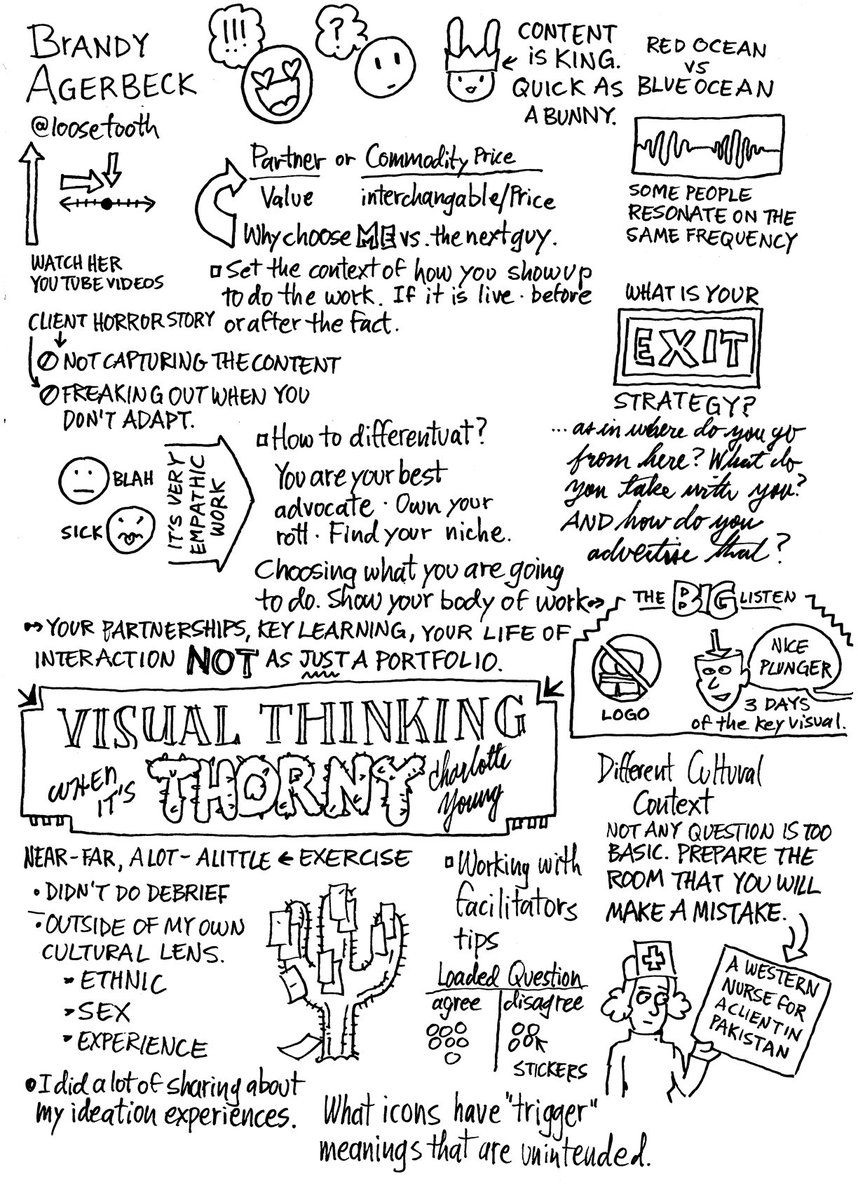 BRANDY
AGERBECK
@loosetooth
!!!
?
CONTENT
IS KING.
QUICK AS
A BUNNY.
RED OCEAN
VS
BLUE OCEAN
SOME PEOPLE
RESONATE ON THE
SAME FREQUENCY
WATCH HER
YOUTUBE VIDEOS
Partner or Commodity Price
Value interchangable/Price
Why choose ME vs. the next guy.
Set the context of how you show up
to do the work. If it is live · before
or after the fact.
CLIENT HORROR STORY
NOT CAPTURING THE CONTENT
FREAKING OUT WHEN YOU
DON'T ADAPT.
WHAT IS YOUR
EXIT
STRATEGY?
...as in where do you go
from here? What do
you take with you?
AND how do you
advertise that?
BLAH
SICK
IT'S VERY
EMPATHIC
WORK
How to differentuat?
You are your best
advocate · Own your
rott · Find your niche.
Choosing what you are going
to do. Show your body of work
YOUR PARTNERSHIPS, KEY LEARNING, YOUR LIFE OF
INTERACTION NOT AS JUST A PORTFOLIO.
THE BIG LISTEN
LOGO
NICE
PLUNGER
3 DAYS
of the key visual.
VISUAL THINKING
WHEN
IT'S
THORNY
Charlotte
Young
NEAR-FAR, A LOT-A LITTLE ← EXERCISE
• DIDN'T DO DEBRIEF
• OUTSIDE OF MY OWN
CULTURAL LENS.
ETHNIC
SEX
EXPERIENCE
• I did a lot of sharing about
my ideation experiences.
Working with
facilitators
tips
Loaded Question
agree disagree
STICKERS
What icons have "trigger"
meanings that are unintended.
Different Cultural
Context
NOT ANY QUESTION IS TOO
BASIC. PREPARE THE
ROOM THAT YOU WILL
MAKE A MISTAKE.
A WESTERN
NURSE FOR
A CLIENT IN
PAKISTAN